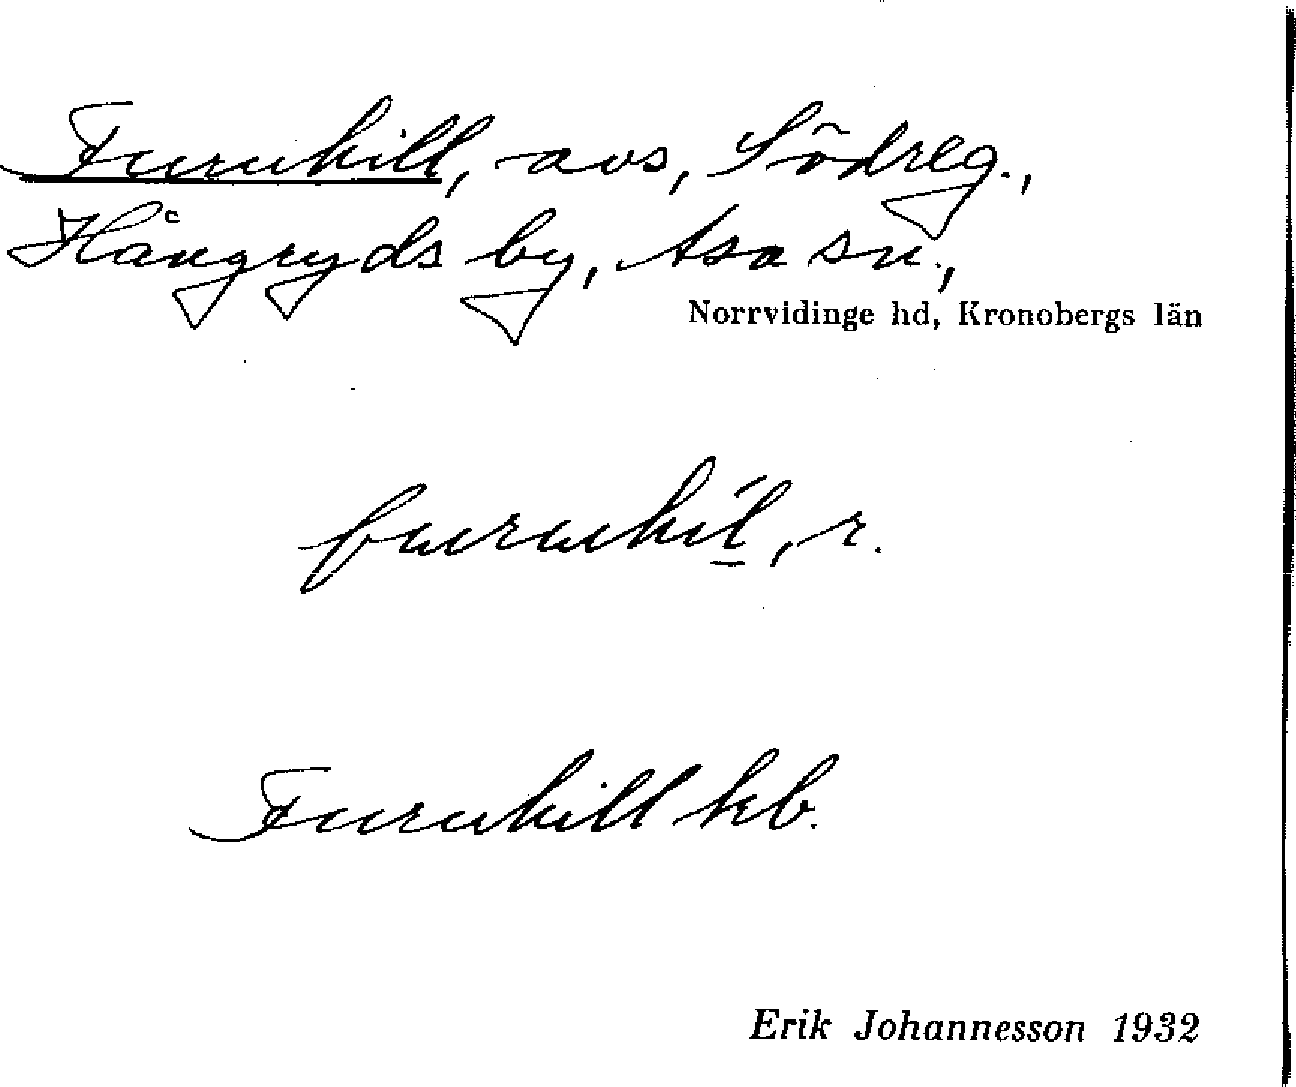 Furuhill, avs, Södreg.,
Hångryds by, Asa sn.,
Norrvidinge hd, Kronobergs län
furuhil, r.
Furuhill kb.
Erik Johannesson 1932